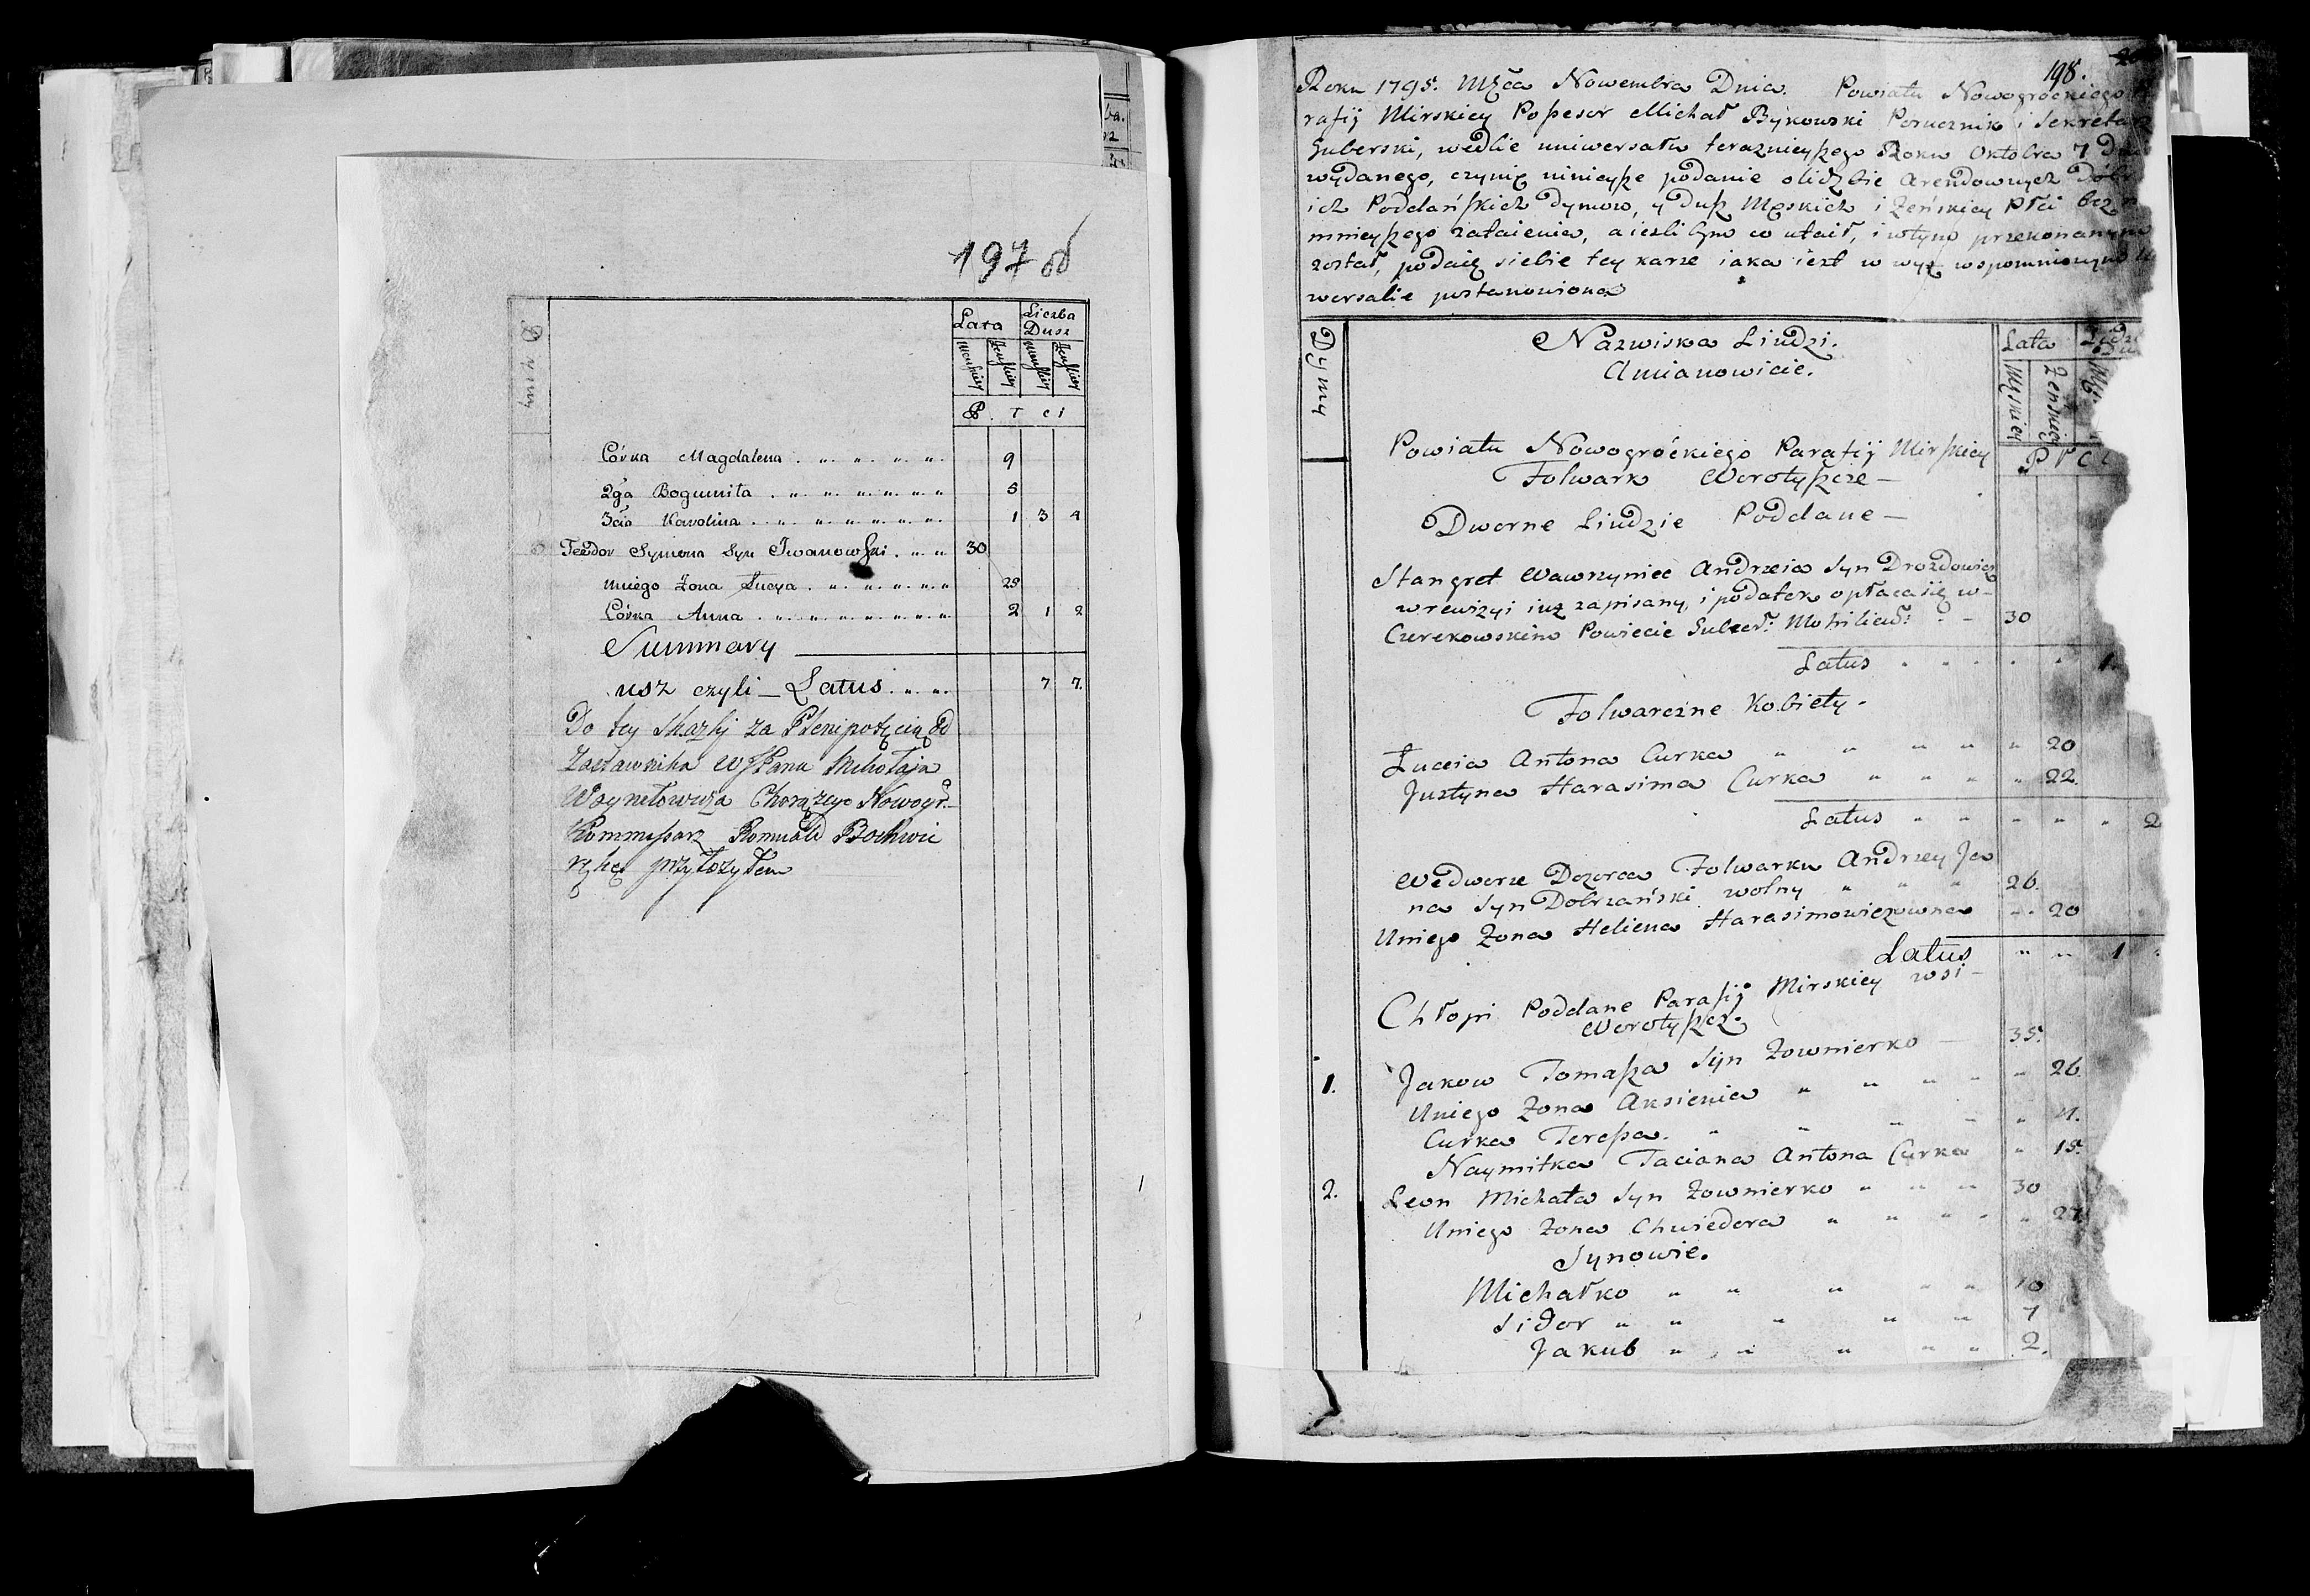 197 об
Dymy
Lata
Liczba Dusz
Męskiey Żeńskiey Męskiey Żeńskiey
P. ł c i
Córka Magdalena 9
2ga Bogumiła 5
3cia Karolina 1 3 4
Teodor Symona Syn Iwanowski 30
uniego Żona Łucya 29
Córka Anna 2 1 2
Summary
usz czyli Latus 7 7.
Do tey Skazki za Plenipotęcią od
Zastawnika WJPana Mikołaja
Woynełowicza Chorążego Nowogr.
Kommissarz Romuald Bochwic
rękę przyłożyłem
198.
Roku 1795. Mźca Nowembra Dnia. Powiatu Nowogrockiego
rafij Mirskiey Possesor Michał Bykowski Porucznik i Sekretarz
Guberski, wedlie uniwersału terazniejszego Roku Oktobra 7 D
wydanego, czynię ninieysze podanie o lidzbie Arendownych Dóbr
ich Poddańskich dymow, y Dusz Męskich i Żeńskiey Płci bez
mnieyszego zataienia, a ieżli bym co utaił, i wtym przekonanym
został, podaię siebie tey karze iaka iest w wyż wspomnionym
wersalie postanowiona
Dymy
Nazwiska Liudzi.
Amianowicie.
Lata
Męskiey Żeńskiey
P ł c i
Powiatu Nowogróckiego Parafij Mirskiey
Folwark Worotyszcze —
Dworne Liudzie Poddane —
Stangret Wawrzyniec Andrzeia Syn Drozdowicz
w rewizyi iuż zapisany, i podatek opłaca się w
Czerekowskim Powiecie Guber: Mohilew: 30
Latus 1.
Folwarczne Kobiety.
Łucia Antona Curka 20
Justyna Harasima Curka 22.
Latus 2
We dworze Dozorca Folwarku Andrzey Ja
na Syn Dobrzański wolny 26.
Uniego Żona Heliena Harasimowiczowna 20
Latus 1
Chłopi Poddane Parafij Mirskiey wsi
Worotyszcz.
1. Jakow Tomasza Syn Żownierko 35.
Uniego Żona Aksienia 26.
Curka Teressa. 4.
Naymitka Taciana Antona Curka 15.
2. Leon Michała Syn Żownierko 30
Uniego Żona Chwiedora 27
Synowie.
Michałko 10
Sidor 7
Jakub 2.